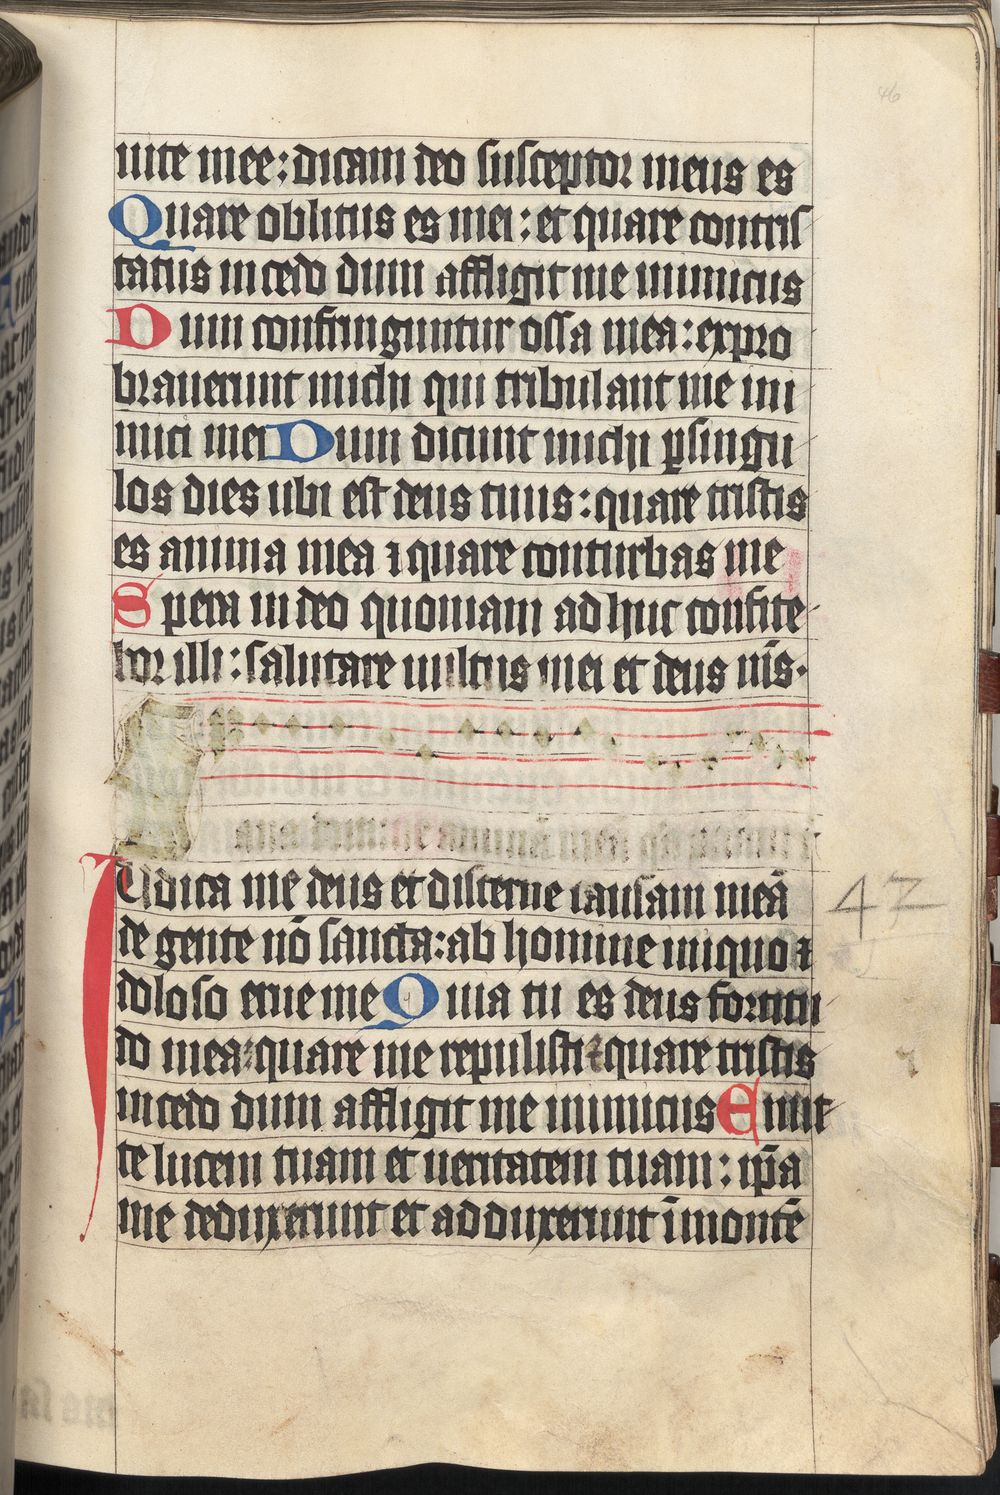 46
uite mee: dicam deo susceptor meus es
Quare oblitus es mei: et quare contris
tatus incedo dum affligit me inimicus
Dum confringuntur ossa mea: expro
brauerunt michi qui tribulant me ini
mici mei Dum dicunt michi ꝑ singu
los dies ubi est deus tuus: quare tristis
es anima mea ⁊ quare conturbas me
Spera in deo quoniam adhuc confite
bor illi: salutare uultus mei et deus mīs.
Iudica me deus et discerne causam meā
42
de gente nō sancta: ab homine iniquo ⁊
doloso erue me Quia tu es deus fortitu
do mea: quare me repulisti ⁊ quare tristis
incedo dum affligit me inimicus Emit
te lucem tuam et ueritatem tuam: ip̄a
me deduxerunt et adduxerunt ī montē